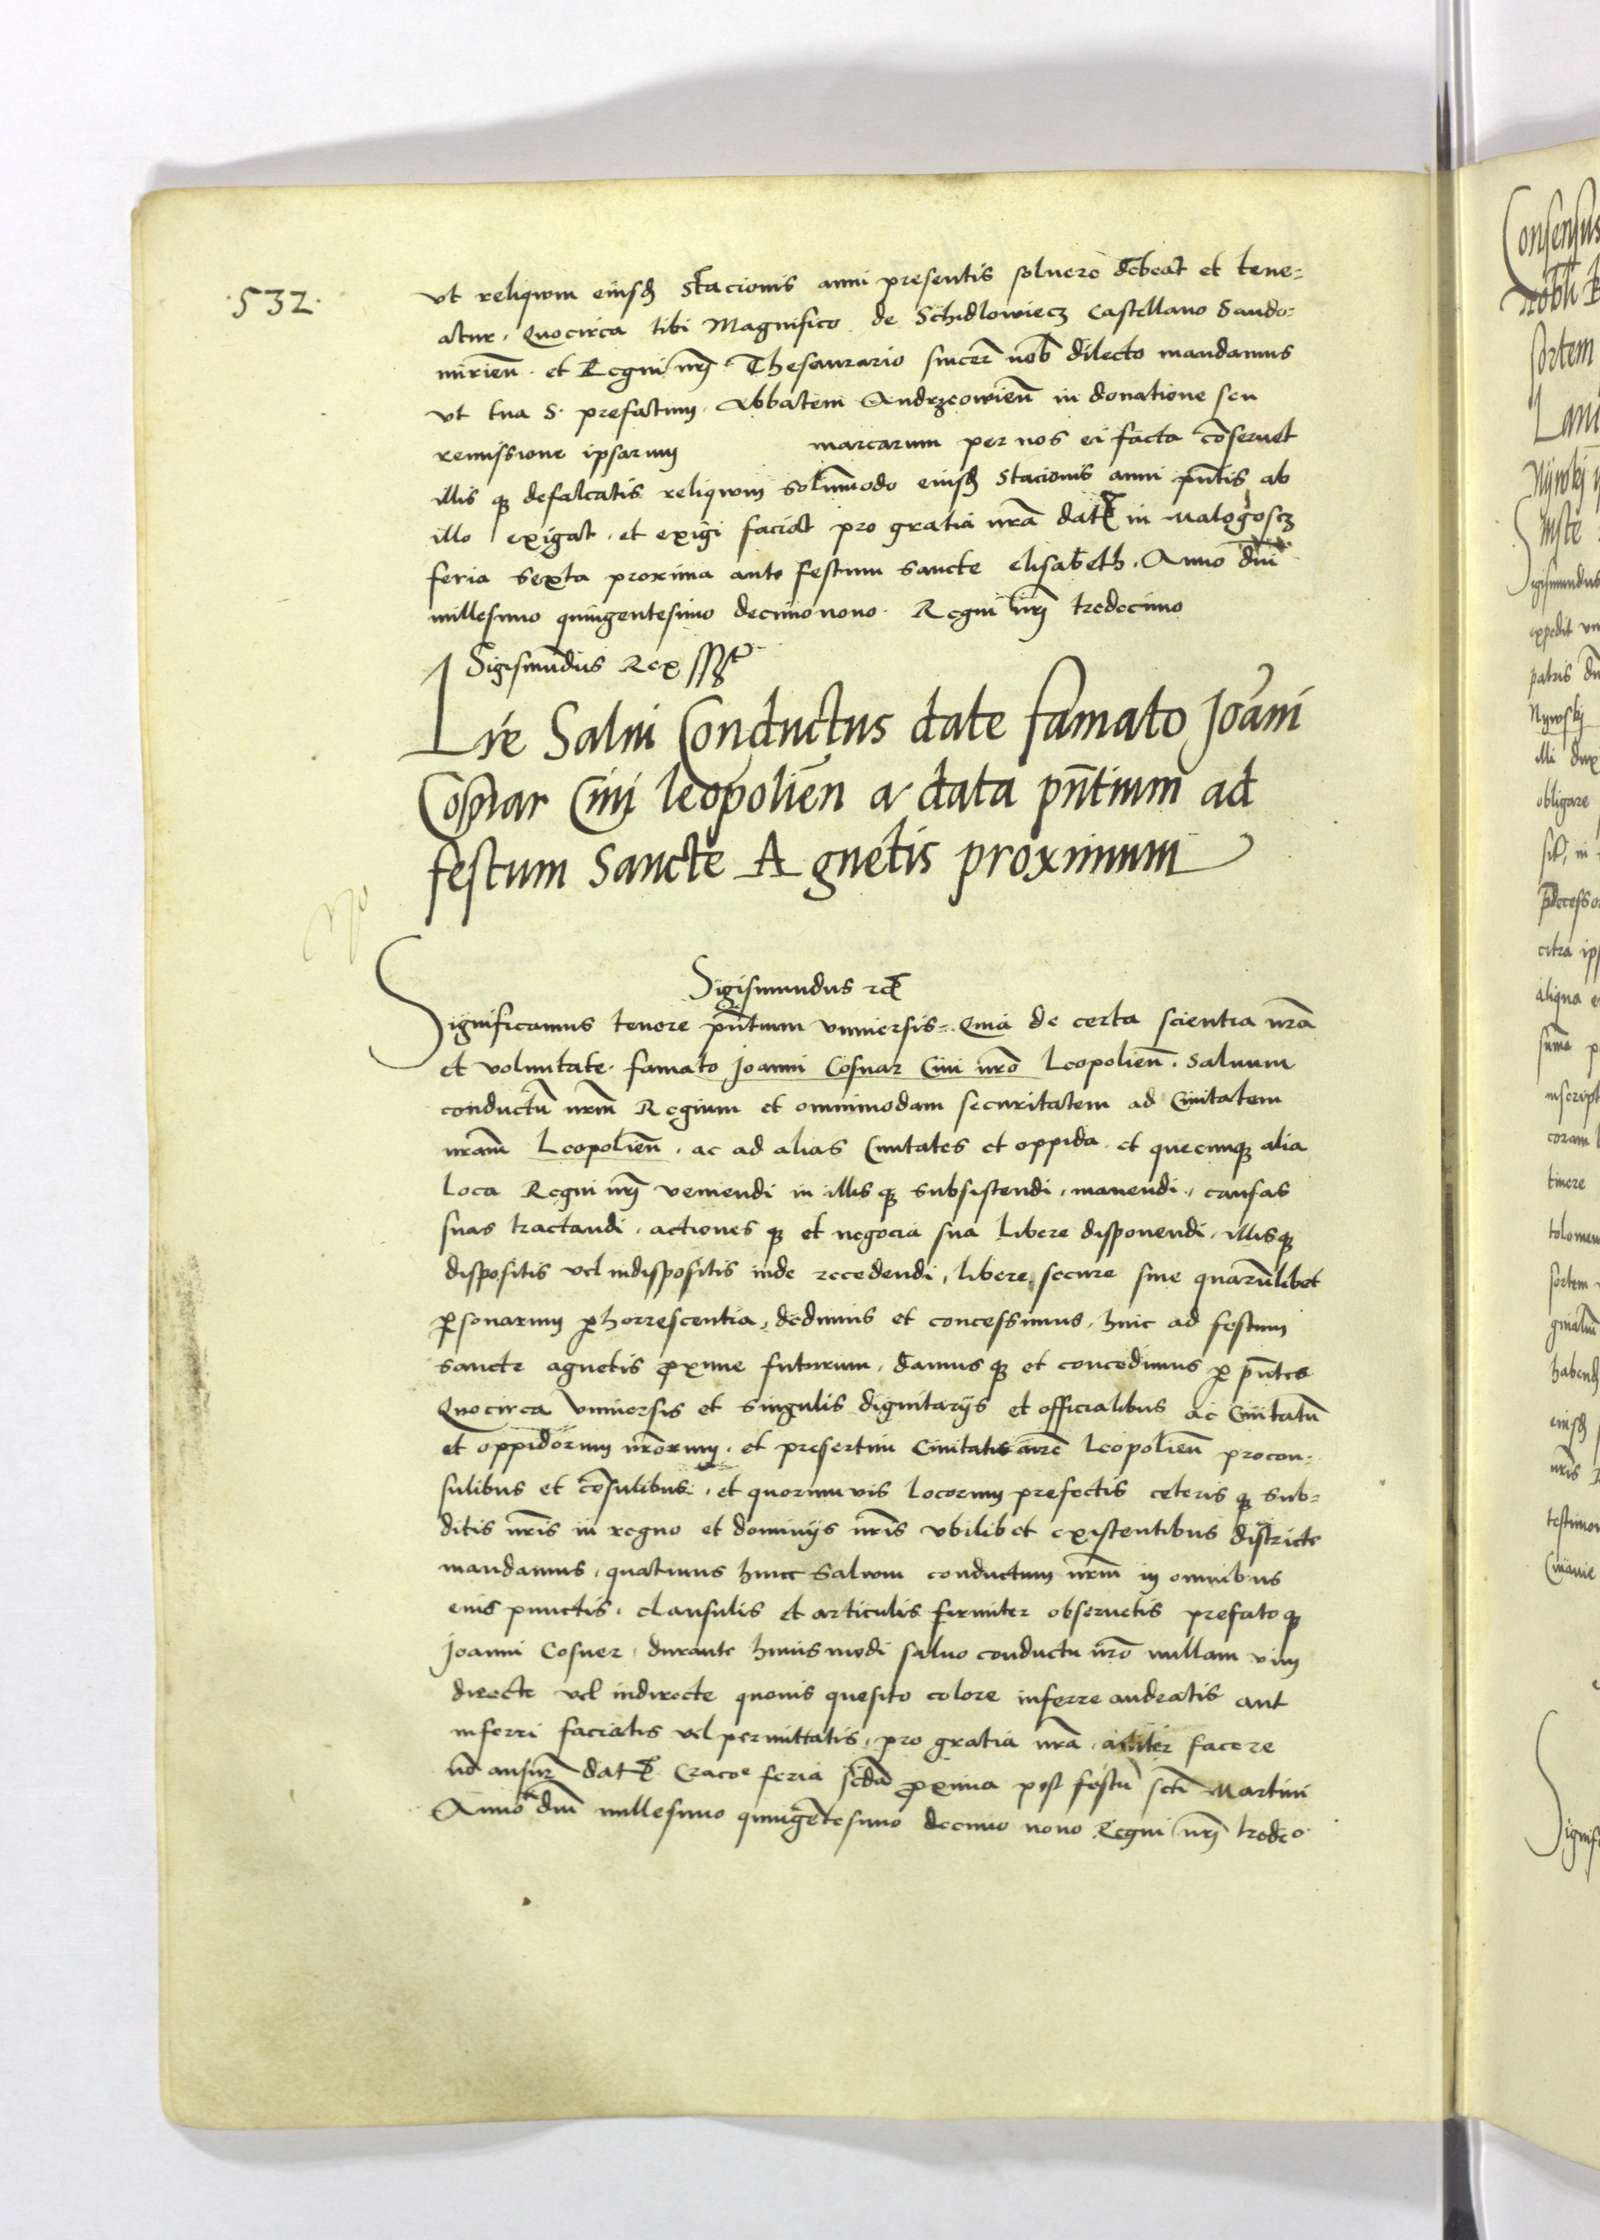 ·532·
vt reliqwm eiusd stacionis anni presentis soluere debeat et tene=
atur. Quocirca tibi Magnifico de Schidlowiecz Castellano Sando=
mirien̄. et Regni nrj Thesaurario sincer̄ nob̄ dilecto mandamus
vt tua S. prefatum. Abbatem Andrzeowien̄ in donatione seu
remissione ipsarum marcarum per nos ei facta cōseruet
illis qʒ defalcatis reliqwm solūmodo eiusd stacionis anni pn̄tis ab
illo exigat. et exigi faciat pro gratia nrā dat in Malogosch
feria sexta proxima ante festum sancte elisabeth. Anno dni
millesimo quingentesimo decimonono. Regni nrj tredecimo
Sigismūdus Rex sspt
Lre Salui Conductus date famato Joāni
Cosnar Ciui leopolien̄ a data pn̄tium ad
festum Sancte Agnetis proximum
Sigismundus rct
Significamus tenore pn̄tium vniuersis. Quia de certa scientia nrā
et voluntate. famato Joanni Cosnar Ciui nrō Leopolien̄. saluum
conductū nrm̄ Regium et omnimodam securitatem ad Ciuitatem
nram̄ Leopolien̄. ac ad alias Ciuitates et oppida. et quecunqʒ alia
Loca Regni nrj veniendi in illis qʒ subsistendi, manendi, causas
suas tractandi. actiones qʒ et negocia sua Libere disponendi. illisqʒ
dispositis vel indispositis inde recedendi, libere, secure sine quarūlibet
p̱sonarum p̱horrescentia, dedimus et concessimus, huic ad festum
sancte agnetis proxime futurum, damus qʒ et concedimus p̱ pn̄tes
Quocirca vniuersis et singulis dignitarijs et officialibus ac Ciuitatū
et oppidorum nrōrum. et presertim Ciuitatis nrē Leopolien̄ procon=
sulibus et cōsulibus. et quorumuis Locorum prefectis ceteris qʒ sub=
ditis nrīs in regno et dominijs nrīs vbilibet existentibus districte
mandamus, quatinus hunc saluum conductum nrm̄ in omnibus
eius punctis, clausulis et articulis firmiter obseruetis prefatoqʒ
Joanni Cosner, durante huiusmodi saluo conductu nrō nullam vim
directe vel indirecte quouis quesito colore inferre audeatis aut
inferri faciatis vel permittatis, pro gratia nrā. aliter facere
nō ausur̄ dat Cracoe feria scdā proxima post festū scti Martini
Anno dni millesimo quingētesimo decimo nono Regni nrj tredeo